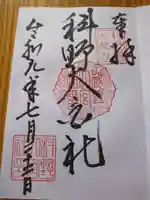 奉拝
科野大宮社
令和元年七月二十二日